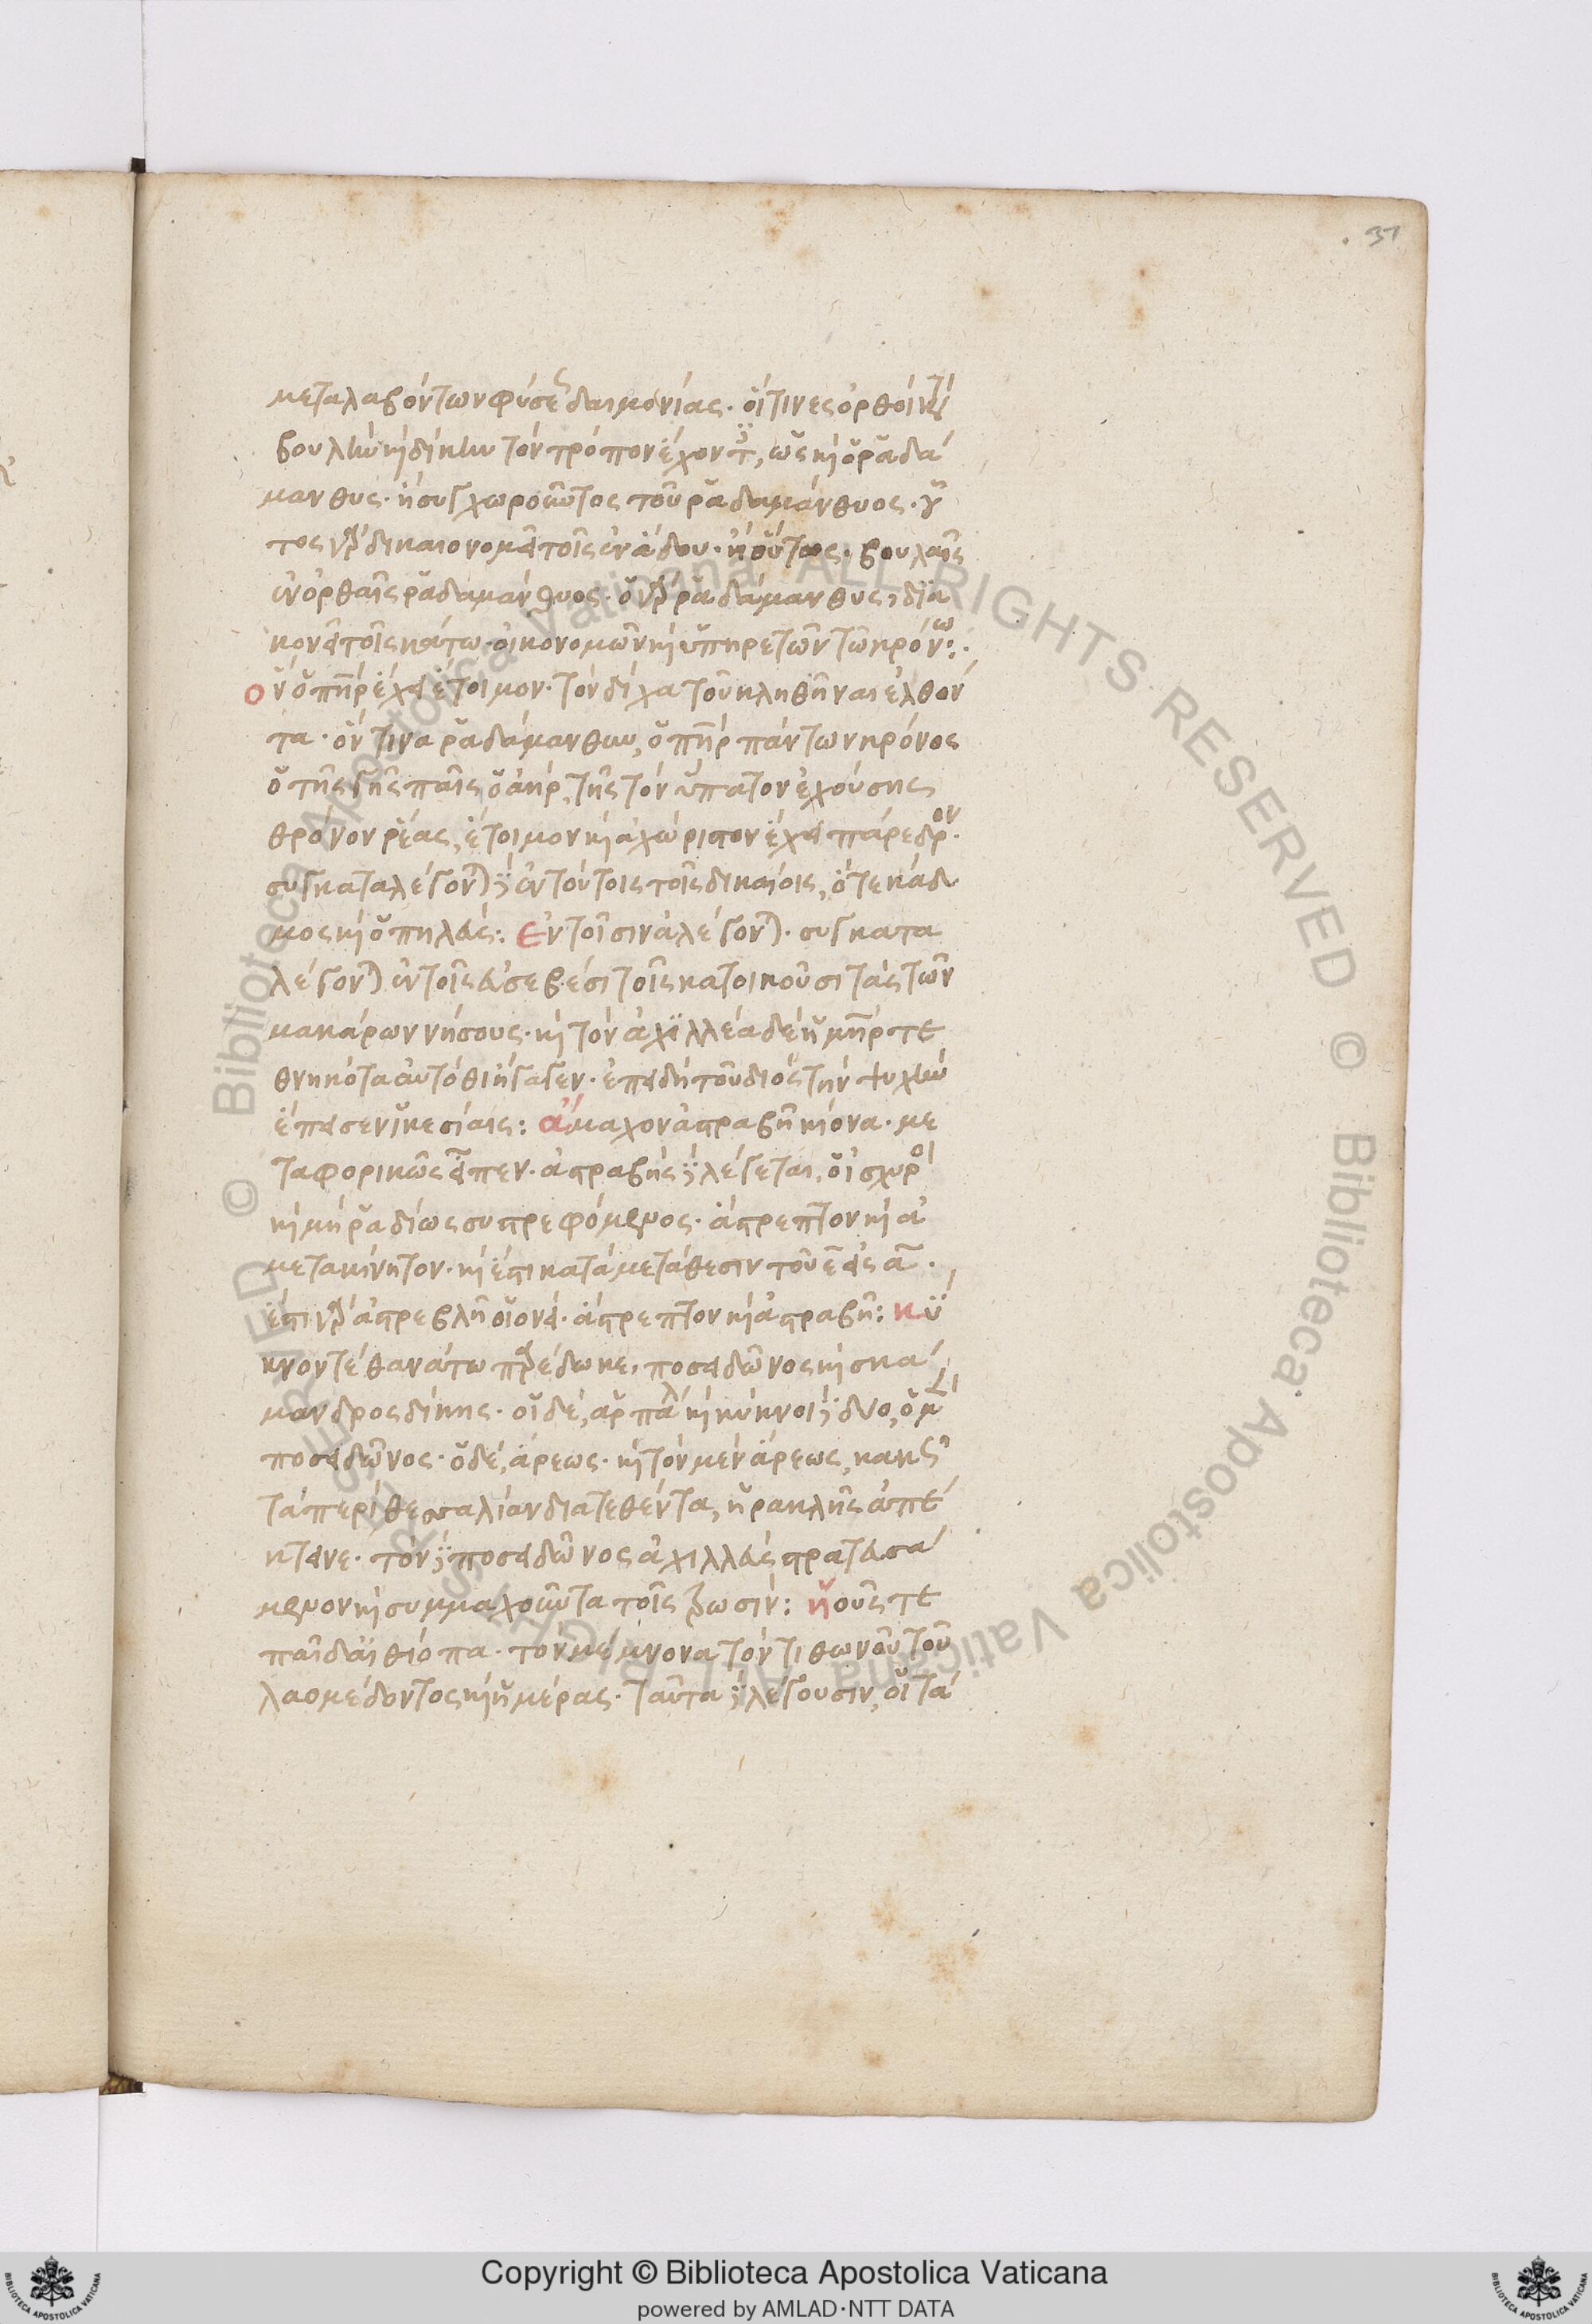 37
μεταλαβόντων φύσεως δαιμονίας· οἵτινες ὀρθοὶ κατὰ
βουλὴν καὶ δίκην τὸν τρόπον ἔχοντες, ὡς καὶ ὁ ῥαδά
μανθυς· ἢ συγχωροῦντος τοῦ ῥαδαμάνθυος· οὗ
τος γὰρ δικαιονομεῖ τοῖς ἐν ἅδου· ἢ οὕτως· βουλαῖς
ἐν ὀρθαῖς ῥαδαμάνθυος· ὁ γὰρ ῥαδάμανθυς, δια
κονεῖ τοῖς κάτω· οἰκονομῶν καὶ ὑπηρετῶν τῷ κρόνῳ:
ὃν ὁ πατὴρ ἔχει ἕτοιμον· τὸν δίχα τοῦ κληθῆναι ἐλθόν
τα· ὅντινα ῥαδάμανθυν, ὁ πατὴρ πάντων κρόνος
ὁ τῆς γῆς παῖς ὁ ἀνὴρ, τῆς τὸν ὕπατον ἐχούσης
θρόνον ῥέας, ἕτοιμον καὶ ἀχώριστον ἔχει πάρεδρον·
συγκαταλέγονται δὲ ἐν τούτοις τοῖς δικαίοις, ὅτε κάδ
μος καὶ ὁ πηλεύς: ἐν τοῖσιν ἀλέγονται· συγκατα
λέγονται ἐν τοῖς εὐσεβέσι τοῖς κατοικοῦσι τὰς τῶν
μακάρων νήσους· καὶ τὸν ἀχιλλέα δὲ ἡ μήτηρ τε
θνηκότα αὐτόθι ἤγαγεν· ἐπειδὴ τοῦ διὸς τὴν ψυχὴν
ἔπεισεν ἱκεσίαις: ἄμαχον ἀστραβῆ κίονα· με
ταφορικῶς εἶπεν· ἀστραβὴς δὲ λέγεται, ὁ ἰσχυρὸς
καὶ μὴ ῥᾳδίως συστρεφόμενος· ἄστρεπτον καὶ ἀ
μετακίνητον· καὶ ἔστι κατὰ μετάθεσιν τοῦ ε εἰς α·
ἔστι γὰρ ἀστρεβλῆ οἱονεὶ· ἄστρεπτον καὶ ἀστραβῆ: κύ
κνον τε θανάτῳ παρέδωκε, ποσειδῶνος καὶ σκα
μανδρος δίκης· οἱ δὲ, καὶ κύκνοι δὲ δύο, ὁ μὲν
ποσειδῶνος· ὁ δὲ, ἄρεως· καὶ τὸν μὲν ἄρεως, κατὰ
τὰ περὶ θεσσαλίαν διατεθέντα, ἡρακλῆς ἀπέ
κτεινε· τὸν δὲ ποσειδῶνος ἀχιλλεὺς στρατευσά
μενον καὶ συμμαχοῦντα τοῖς τρωσίν: ἠοῦς τε
παῖδ' αἰθίοπα· τὸν μέμνονα τὸν τιθωνοῦ τοῦ
λαομέδοντος καὶ ἡμέρας· ταῦτα δὲ λέγουσιν, οἱ τὰ
Copyright © Biblioteca Apostolica Vaticana
powered by AMLAD·NTT DATA
© Biblioteca Apostolica Vaticana ALL RIGHTS RESERVED
© Biblioteca Apostolica Vaticana ALL RIGHTS RESERVED
BIBLIOTECA APOSTOLICA VATICANA
BIBLIOTECA APOSTOLICA VATICANA